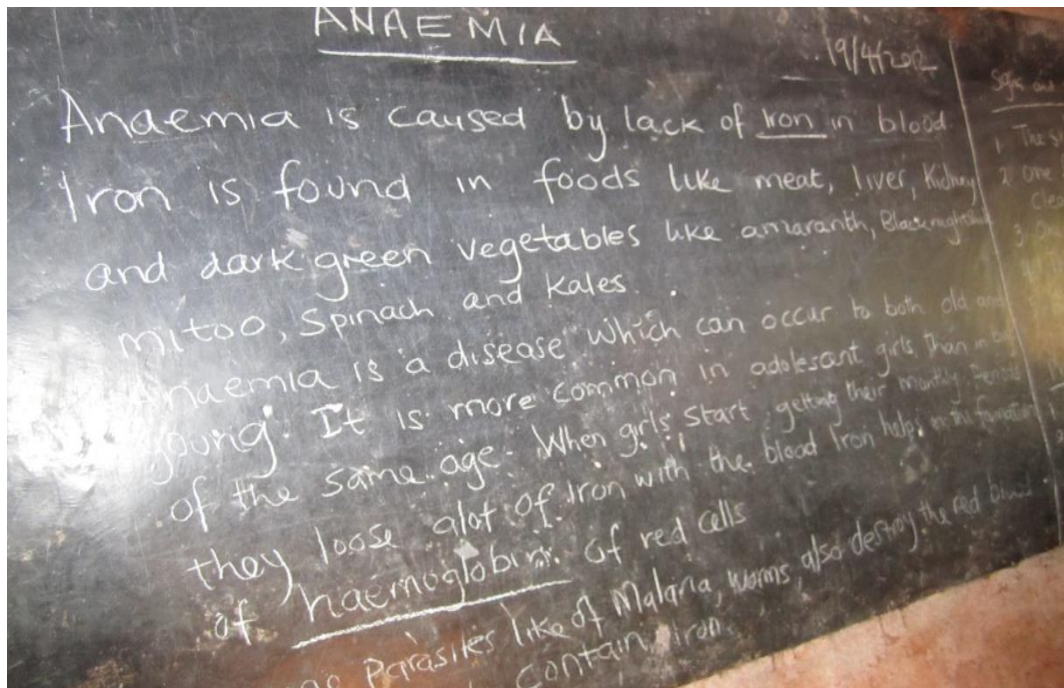 ANAEMIA
19/4/2012
Anaemia is caused by lack of Iron in blood.
Iron is found in foods like meat, liver, Kidney
and dark green vegetables like amaranth, Blacknightshade
mitoo, Spinach and Kales.
Anaemia is a disease which can occur to both old and
young. It is more common in adolescant girls than in
of the same age. When girls start getting their monthly Periods
they loose alot of Iron with the blood Iron helps in the formation
of haemoglobin of red cells
Parasites like of Malaria, worms, also destroy the red blood
contain iron.
1 The
2 One
3